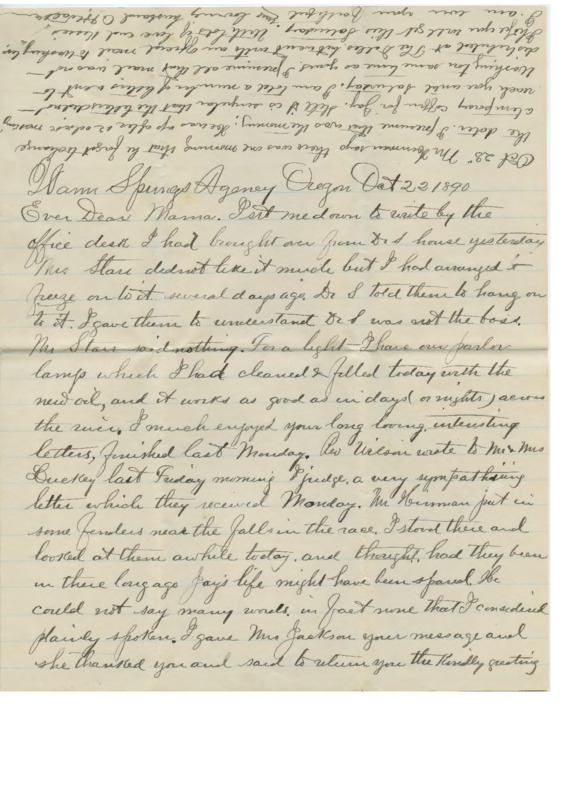 Warm Springs Agency Oregon Oct 22 1890
Ever Dear Mama. I sit me down to write by the
office desk I had brought over from Dr S house yesterday
Mrs Starr did not like it much but I had arranged to
freeze on to it several days ago. Dr S told them to hang on
to it. I gave them to understand Dr S was not the boss.
Mr Starr said nothing. For a light I have our parlor
lamp which I had cleaned & filled today with the
new oil, and it works as good as in days (or nights) across
the river. I much enjoyed your long loving interesting
letters, finished last Monday. Rev Wilson wrote to Mr & Mrs
Luckey last Friday morning I judge, a very sympathising
letter which they received Monday. Mr Hinman put in
some fenders near the falls in the race. I stood there and
looked at them awhile today, and thought, had they been
in there long ago Jay's life might have been spared. He
could not say many words, in fact none that I considered
plainly spoken. I gave Mrs Jackson your message and
she thanked you and said to return you the kindly greeting
Oct 28" Mr Hinman says there was one morning that he forgot to change
the dater. I presume that was the morning; he was up after
a temporary coffin for Jay. Still it is singular that the letters did not
reach you until Saturday. I am told a number of letters went to
Washington same time as yours. I presume all that mail was not
distributed at The Dalles but went with an agent mail to Washington,
I hope you will get this Saturday. With lots of love and kisses
I am ever your faithful & loving husband